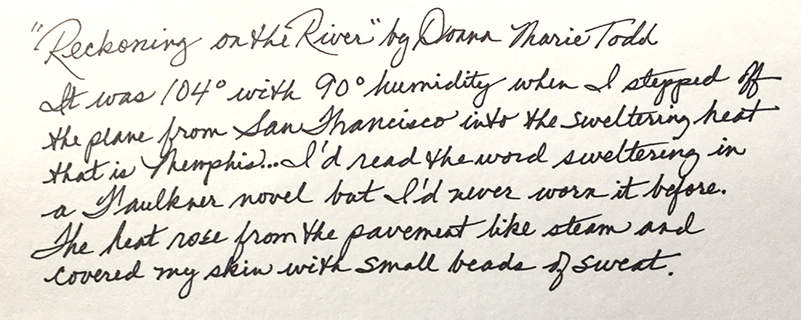 "Reckoning on the River" by Donna Marie Todd
It was 104° with 90° humidity when I stepped off
the plane from San Francisco into the sweltering heat
that is Memphis... I'd read the word sweltering in
a Faulkner novel but I'd never worn it before.
The heat rose from the pavement like steam and
covered my skin with small beads of sweat.